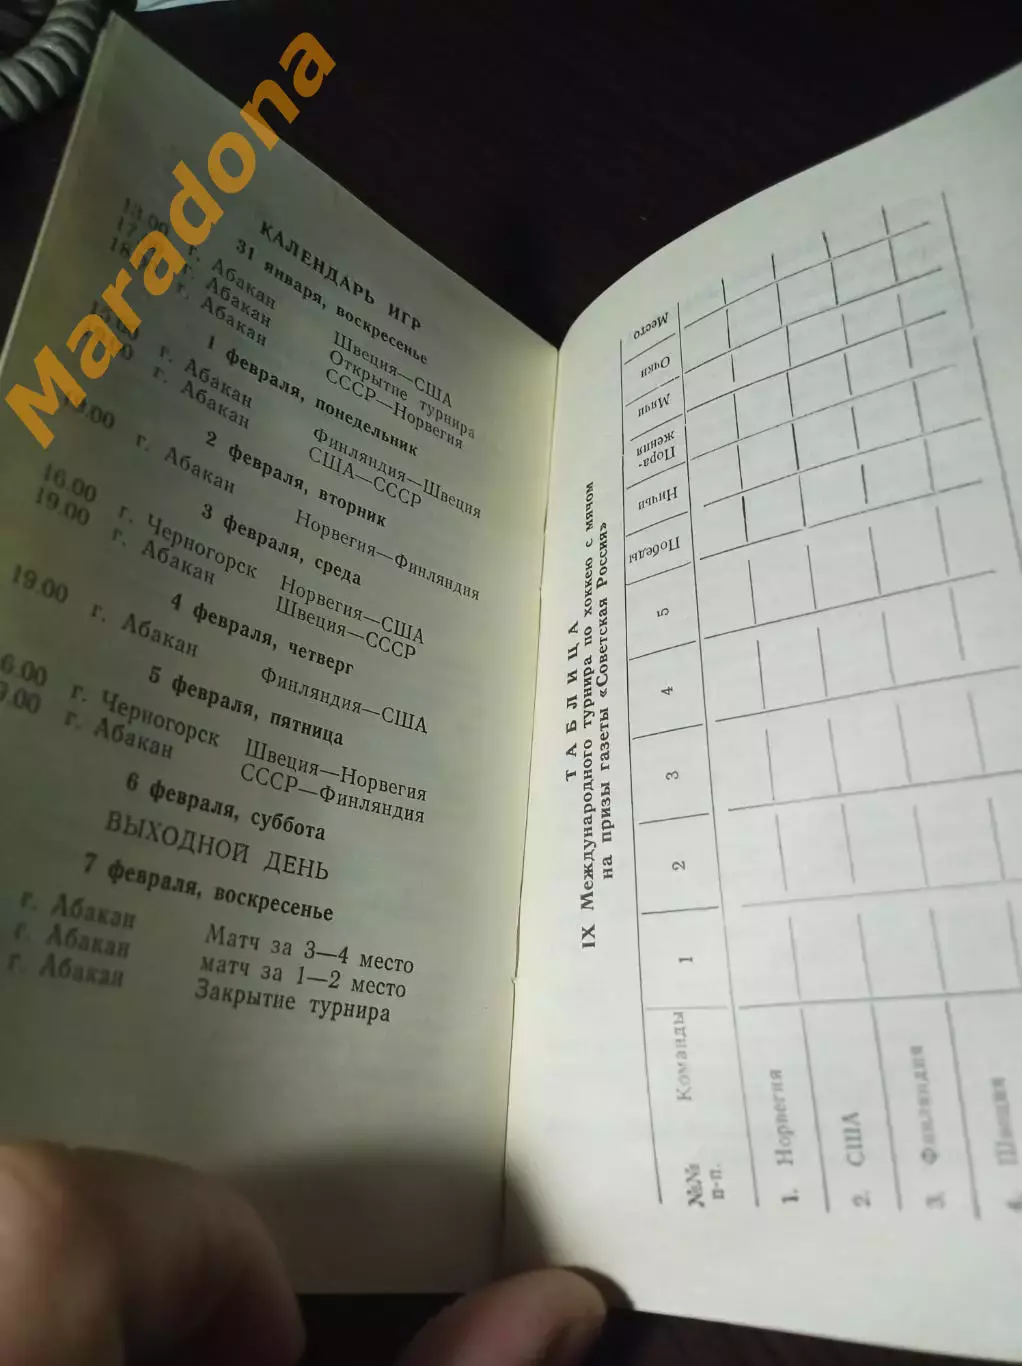 Maradona
КАЛЕНДАРЬ ИГР
31 января, воскресенье
13.00 г. Абакан Швеция—США
г. Абакан Открытие турнира
г. Абакан СССР—Норвегия
1 февраля, понедельник
г. Абакан Финляндия—Швеция
г. Абакан США—СССР
2 февраля, вторник
г. Абакан Норвегия—Финляндия
3 февраля, среда
16.00 г. Черногорск Норвегия—США
19.00 г. Абакан Швеция—СССР
4 февраля, четверг
19.00 г. Абакан Финляндия—США
5 февраля, пятница
6.00 г. Черногорск Швеция—Норвегия
9.00 г. Абакан СССР—Финляндия
6 февраля, суббота
ВЫХОДНОЙ ДЕНЬ
7 февраля, воскресенье
г. Абакан Матч за 3—4 место
г. Абакан матч за 1—2 место
г. Абакан Закрытие турнира
ТАБЛИЦА
IX Международного турнира по хоккею с мячом
на призы газеты «Советская Россия»
№№ п-п. Команды 1 2 3 4 5 Победы Ничьи Пора-жения Мячи Очки Место
1. Норвегия
2. США
3. Финляндия
4. Швеция